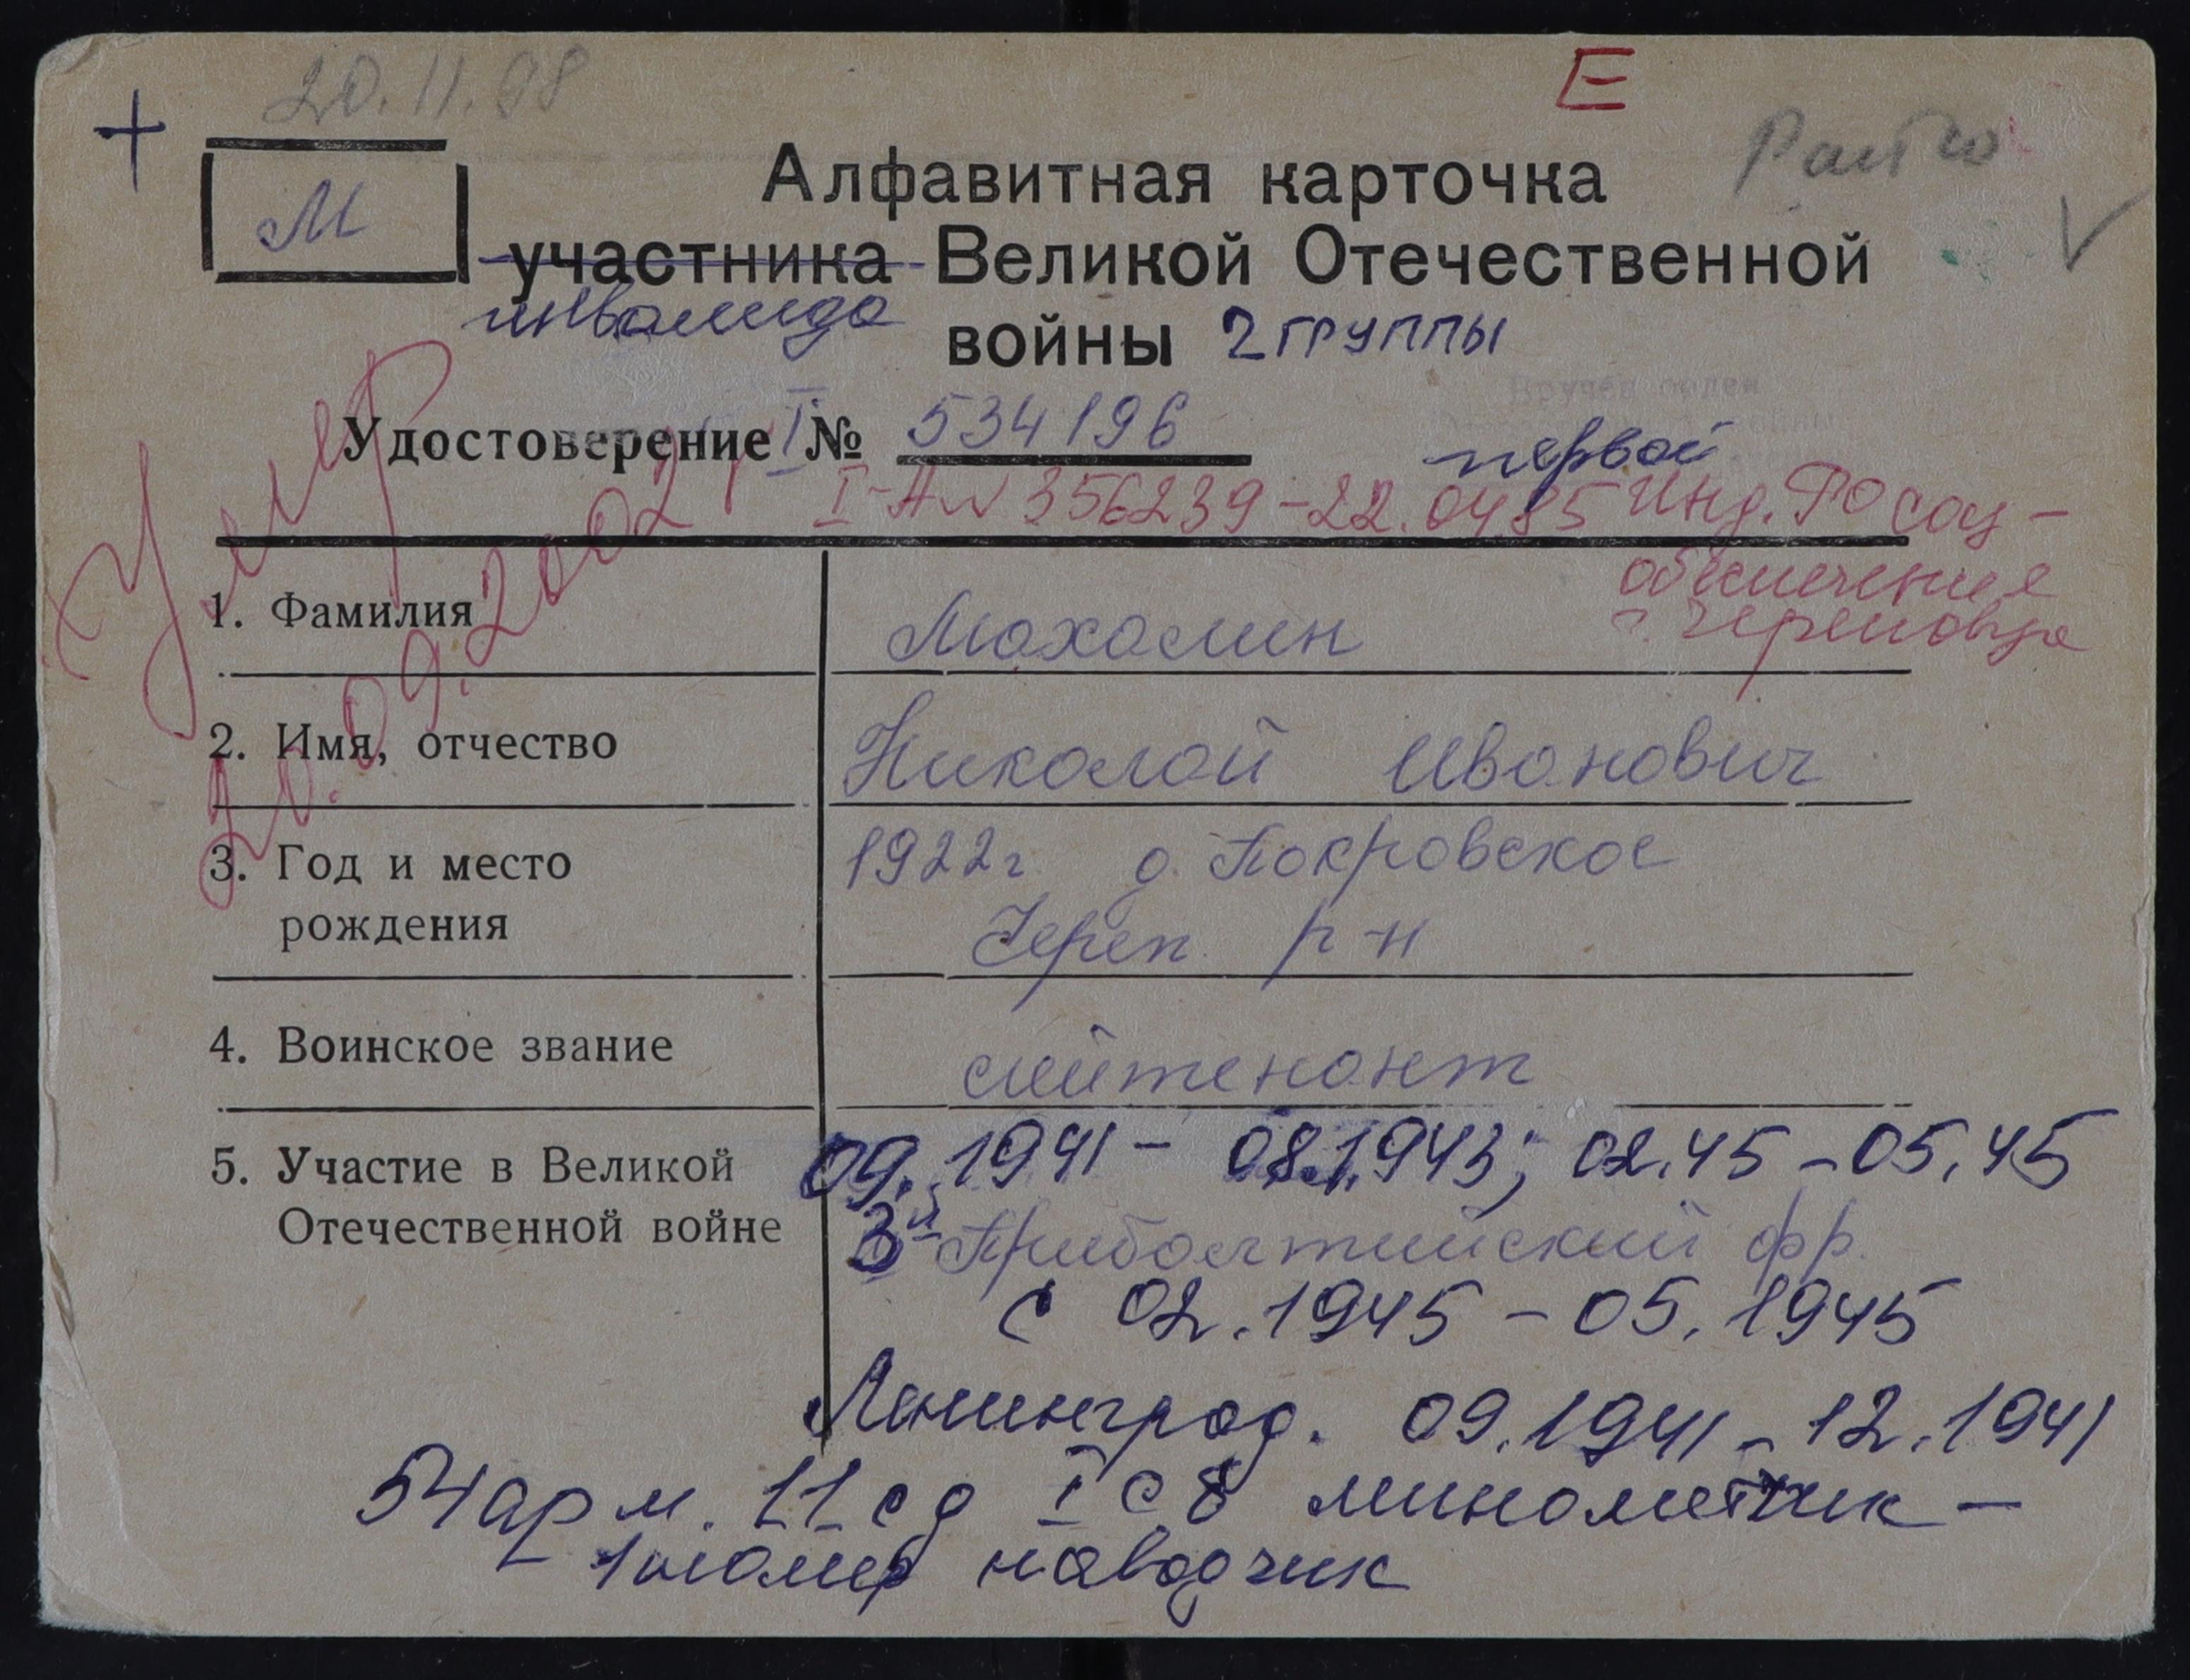 20.11.98
Е
+
М
Алфавитная карточка
участника Великой Отечественной
инвалида
войны 2 группы
Удостоверение I № 534196
Вручён орден
первой
I-А № 356239 - 22.04.85 Инд. ГО соц-
обеспечения
г. Череповца
Умер
20.09.2002 г
1. Фамилия
Махалин
2. Имя, отчество
Николай Иванович
3. Год и место
рождения
1922г д. Покровское
Череп. р-н
4. Воинское звание
лейтенант
5. Участие в Великой
Отечественной войне
09.1941 - 08.1943; 02.45 - 05.45
3й Прибалтийский фр.
с 02.1945 - 05.1945
Ленинград. 09.1941 - 12.1941
54 арм. 11 сд I сб минометчик -
- 1 номер наводчик